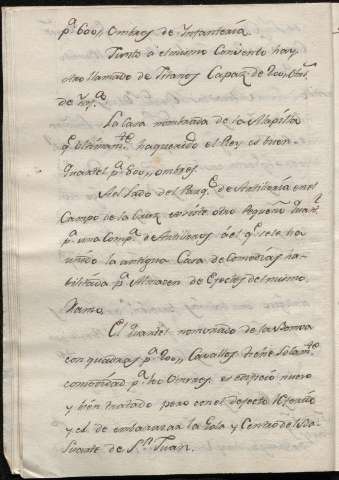 pª 600,, Ombres de Ynfantería.
Junto a el mismo Convento hay
otro llamado de Gitanos Capaz de 200,, Obrs
de Ynfª
La Casa nombrada de la Mapilla
qe ultimamte ha querido el Rey es buen
Quartel pª 600,, ombres.
A el lado del Parqe de Artilleria en el
Campo de la Cruz existe otro Pequeño Quartl
pª una Compª de Artilleros a el qe se le ha
unido la antigua Casa de Comedias ha-
bilitada pª Almacen de efectos del mismo
Ramo.
El Quartel nombrado de la Bomva
con quadras pª 800,, Cavallos tiene solamte
comodidad pª 400 Ombres, es edificio nuevo
y bien tratado pero con el defecto
y el de embarazar la Gola y Centro del Ba-
luarte de Sn Juan.